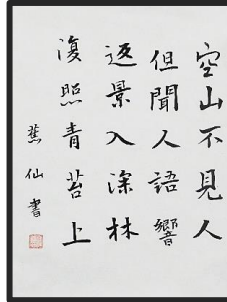 空山不見人
但聞人語響
返景入深林
復照青苔上
蕉仙書